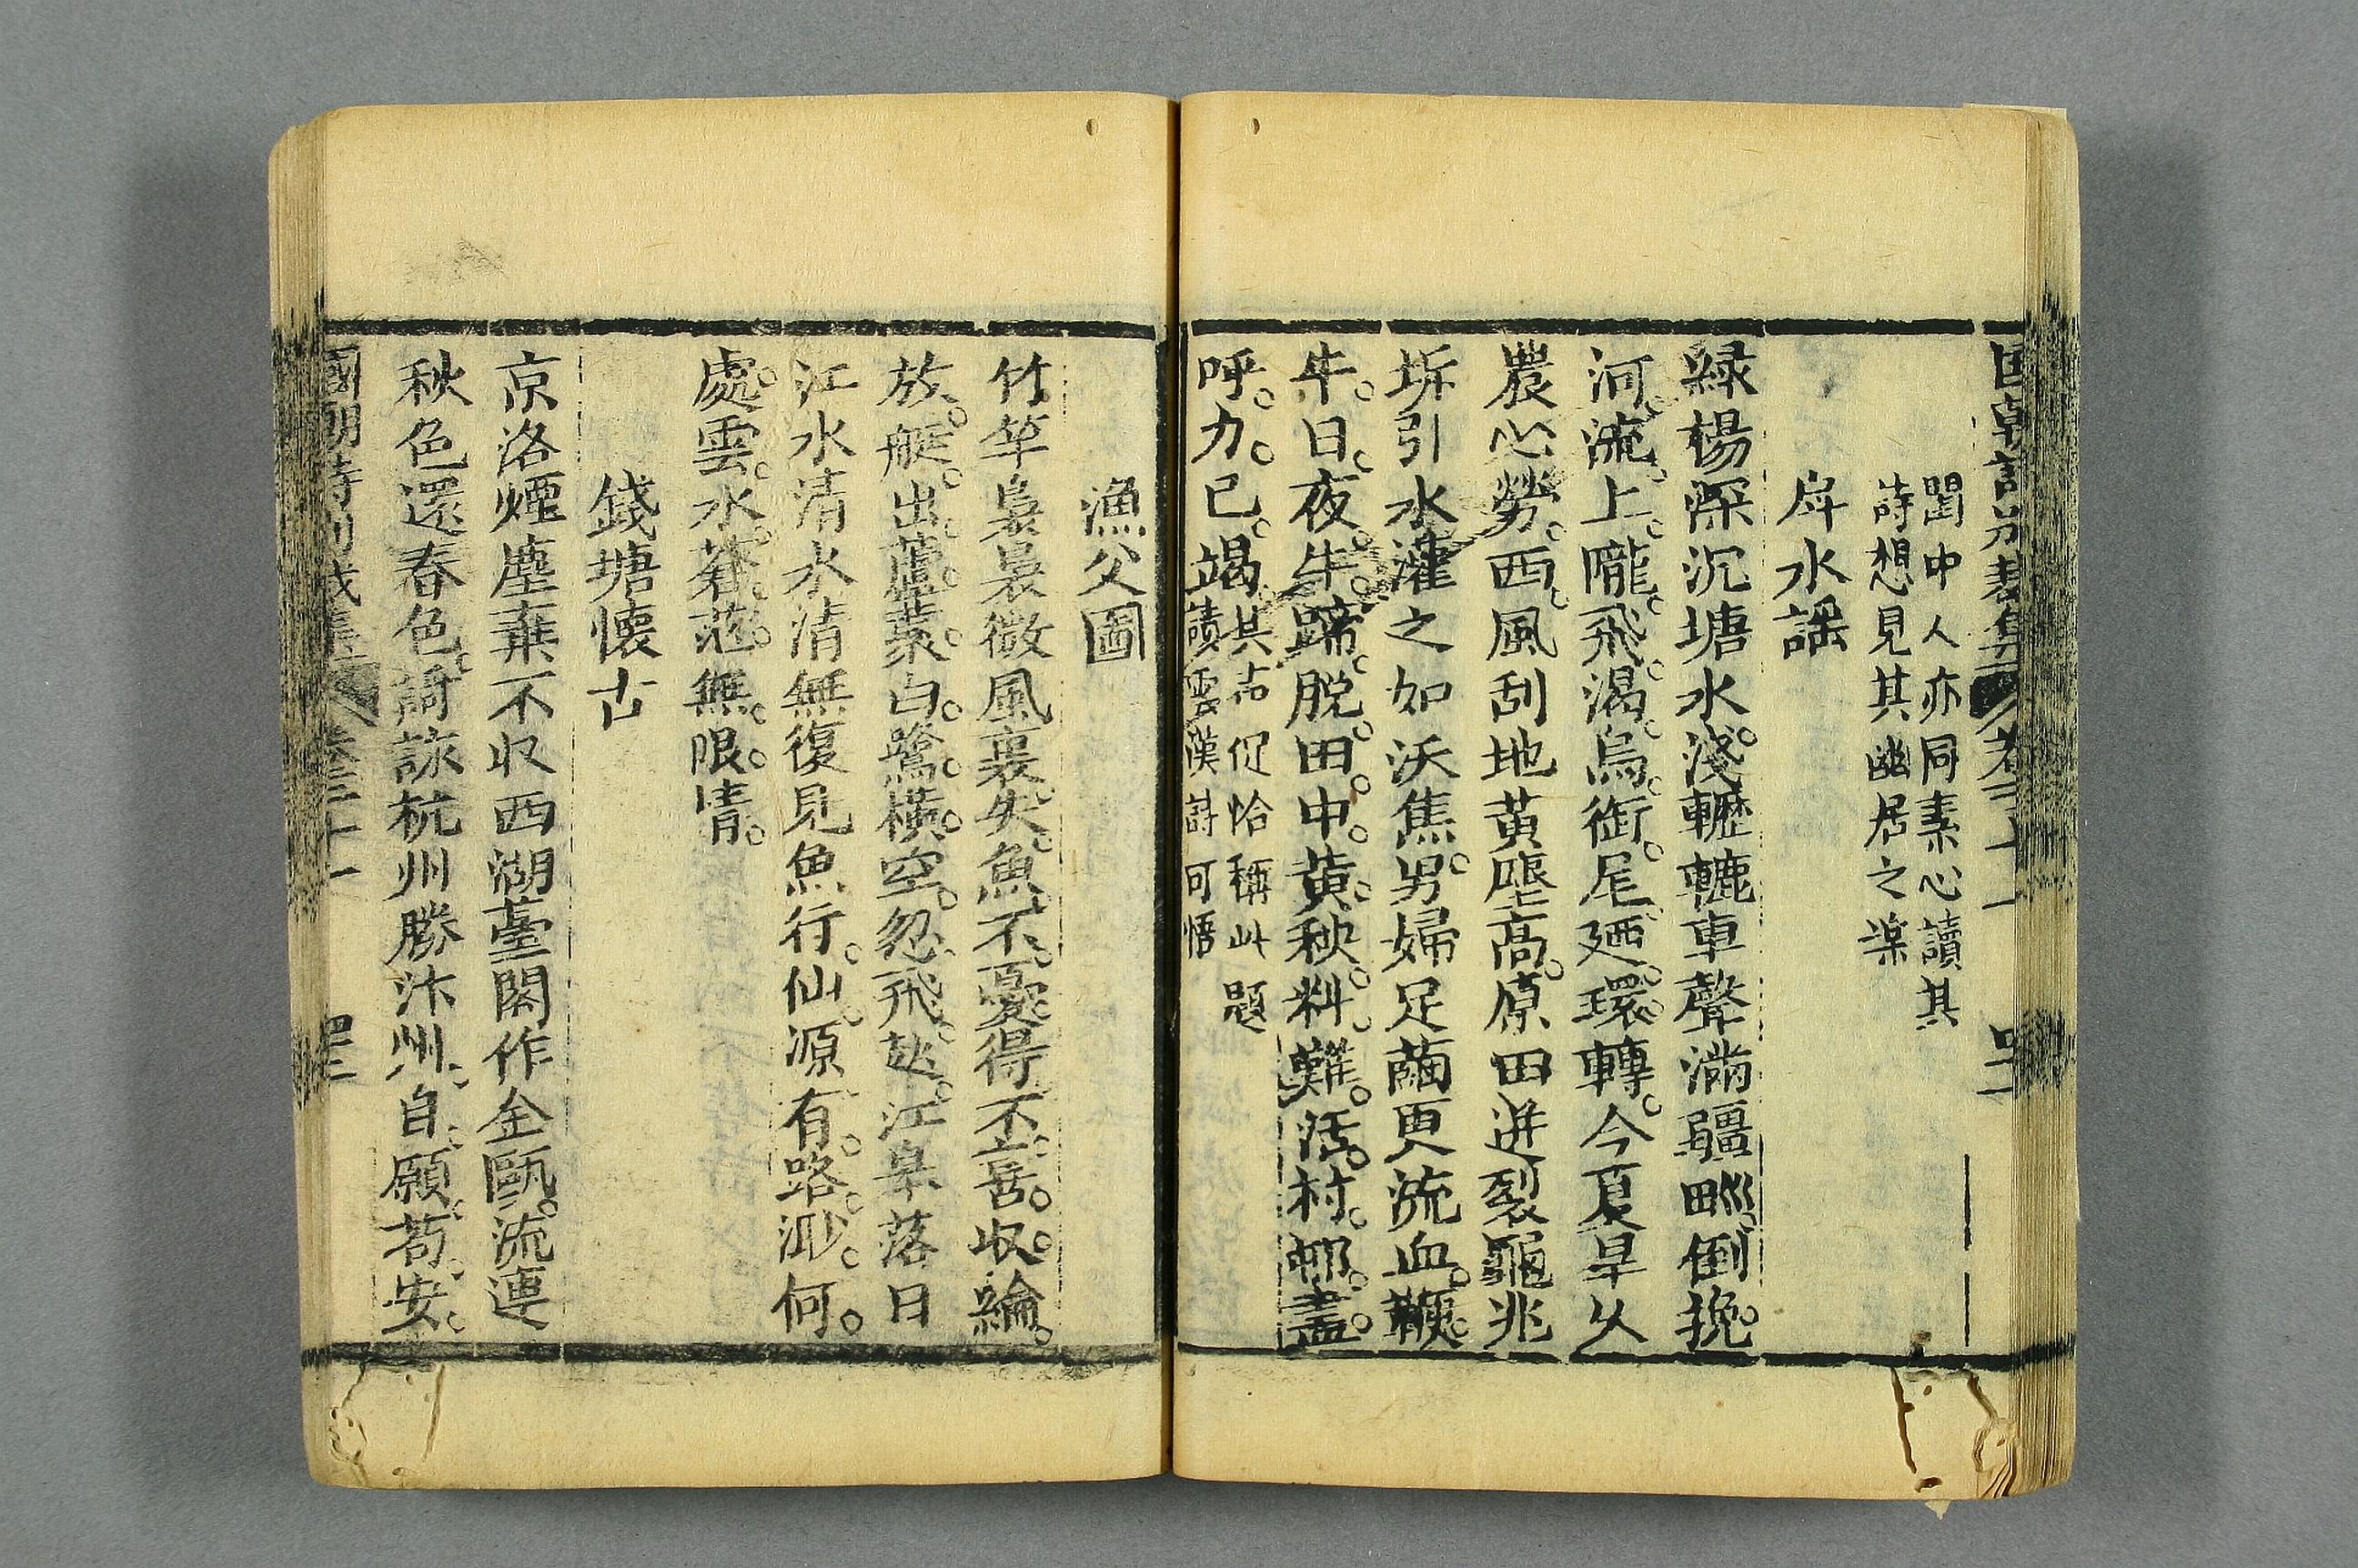 國朝詩別裁集 卷三十一 四二
閨中人亦同素心讀其
詩想見其幽居之樂
戽水謡
綠楊深沉塘水淺轣轆車聲滿疆甽倒挽
河流上隴飛渴烏銜尾廻環轉今夏旱久
農心勞西風刮地黃塵高原田迸裂龜兆
坼引水灌之如沃焦男婦足繭更流血鞭
牛日夜牛蹄脱田中黃秧料難活村邨盡
呼力已竭
其促恰稱此題
讀雲漢詩可悟
漁父圖
竹竿裊裊微風裏失魚不憂得不喜收綸
放艇出蘆叢白鷺橫空忽飛起江皋落日
江水清水清無復見魚行仙源有路渺何
處雲水蒼茫無限情
錢塘懷古
京洛煙塵棄不収西湖臺閣作金甌流連
秋色還春色謌詠杭州勝汴州自願苟安
國朝詩別裁集 卷三十一 四三